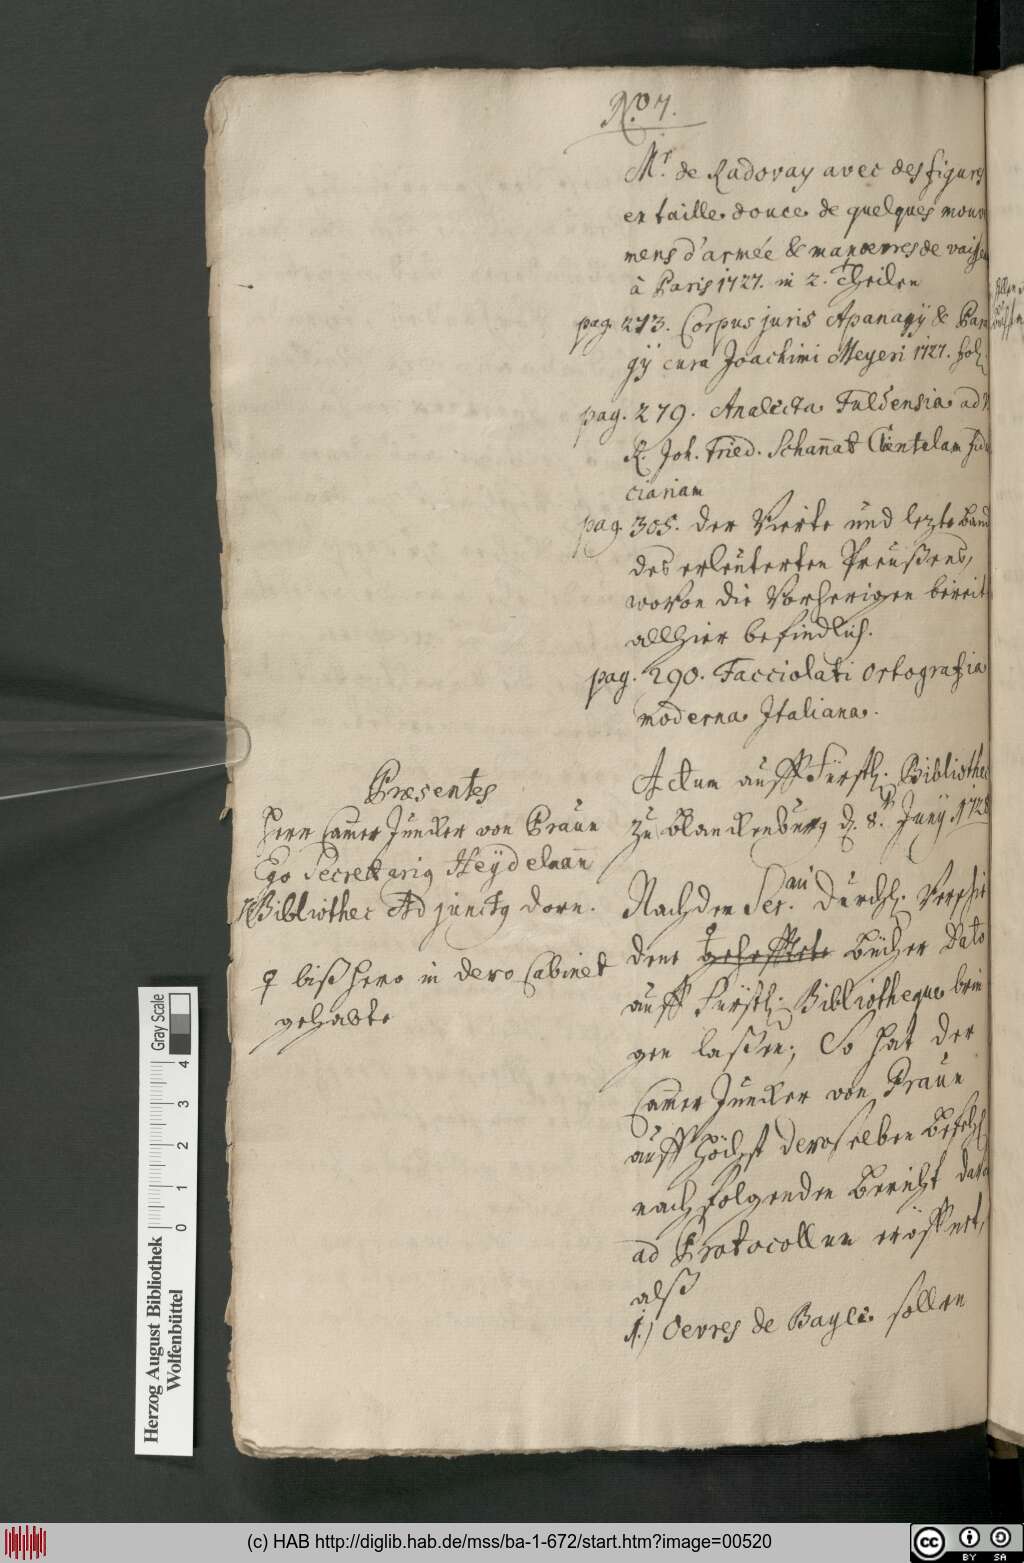 No 7.
Mr. de Radovay avec des figures
en taille douce de quelques mouv
mens d'armée & manoevres de vaisse
à Paris 1727. in 2. Theilen
pag. 273. Corpus juris Apanagÿ & Para
gÿ cura Joachimi Meyeri 1727. fol.
pag. 279. Analecta Fuldensia ad
R. Joh. Fried. Schannat Clientelam fidu
ciariam
pag. 305. der Vierte und lezte Band
des erleuterten Preußens,
wovon die Vorherigen bereit
allhier befindlich.
pag. 290. Facciolati Ortografia
moderna Italiana.
Actum auff Fürstl. Bibliothec
zu Blanckenburg d. 8. Junÿ 1728
Præsentes
Herr Camer Juncker von Praun
Ego Secretarig Heÿdelmann
Bibliothec Adjunctg Dorn.
Nachdem Ser. Durchl. Verschie
dene geheffete Bücher Dato
auff Fürstl. Bibliotheque brin
gen laßen; So hat der
Camer Juncker von Praun
auff höchst deroselben Befehl
nachfolgenden Bericht
ad Protocollum eröffnet,
alß
1.) Oevres de Bayle sollen
bißhero in dero Cabinet
gehabte
Gray Scale
0 1 2 3 4
Herzog August Bibliothek
Wolfenbüttel
(c) HAB http://diglib.hab.de/mss/ba-1-672/start.htm?image=00520
cc BY SA